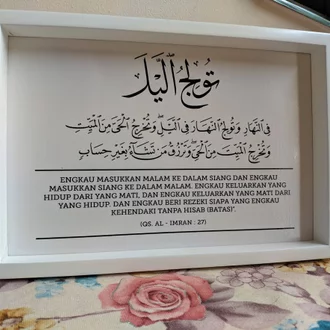 تُولِجُ ٱلَّيلَ
فِي النَّهَارِ وَتُولِجُ النَّهَارَ فِي الَّيْلِ وَتُخْرِجُ الْحَيَّ مِنَ الْمَيِّتِ
وَتُخْرِجُ الْمَيِّتَ مِنَ الْحَيِّ وَتَرْزُقُ مَنْ تَشَآءُ بِغَيْرِ حِسَابٍ
ENGKAU MASUKKAN MALAM KE DALAM SIANG DAN ENGKAU
MASUKKAN SIANG KE DALAM MALAM. ENGKAU KELUARKAN YANG
HIDUP DARI YANG MATI, DAN ENGKAU KELUARKAN YANG MATI DARI
YANG HIDUP. DAN ENGKAU BERI REZEKI SIAPA YANG ENGKAU
KEHENDAKI TANPA HISAB (BATAS)".
(QS. AL - IMRAN : 27)